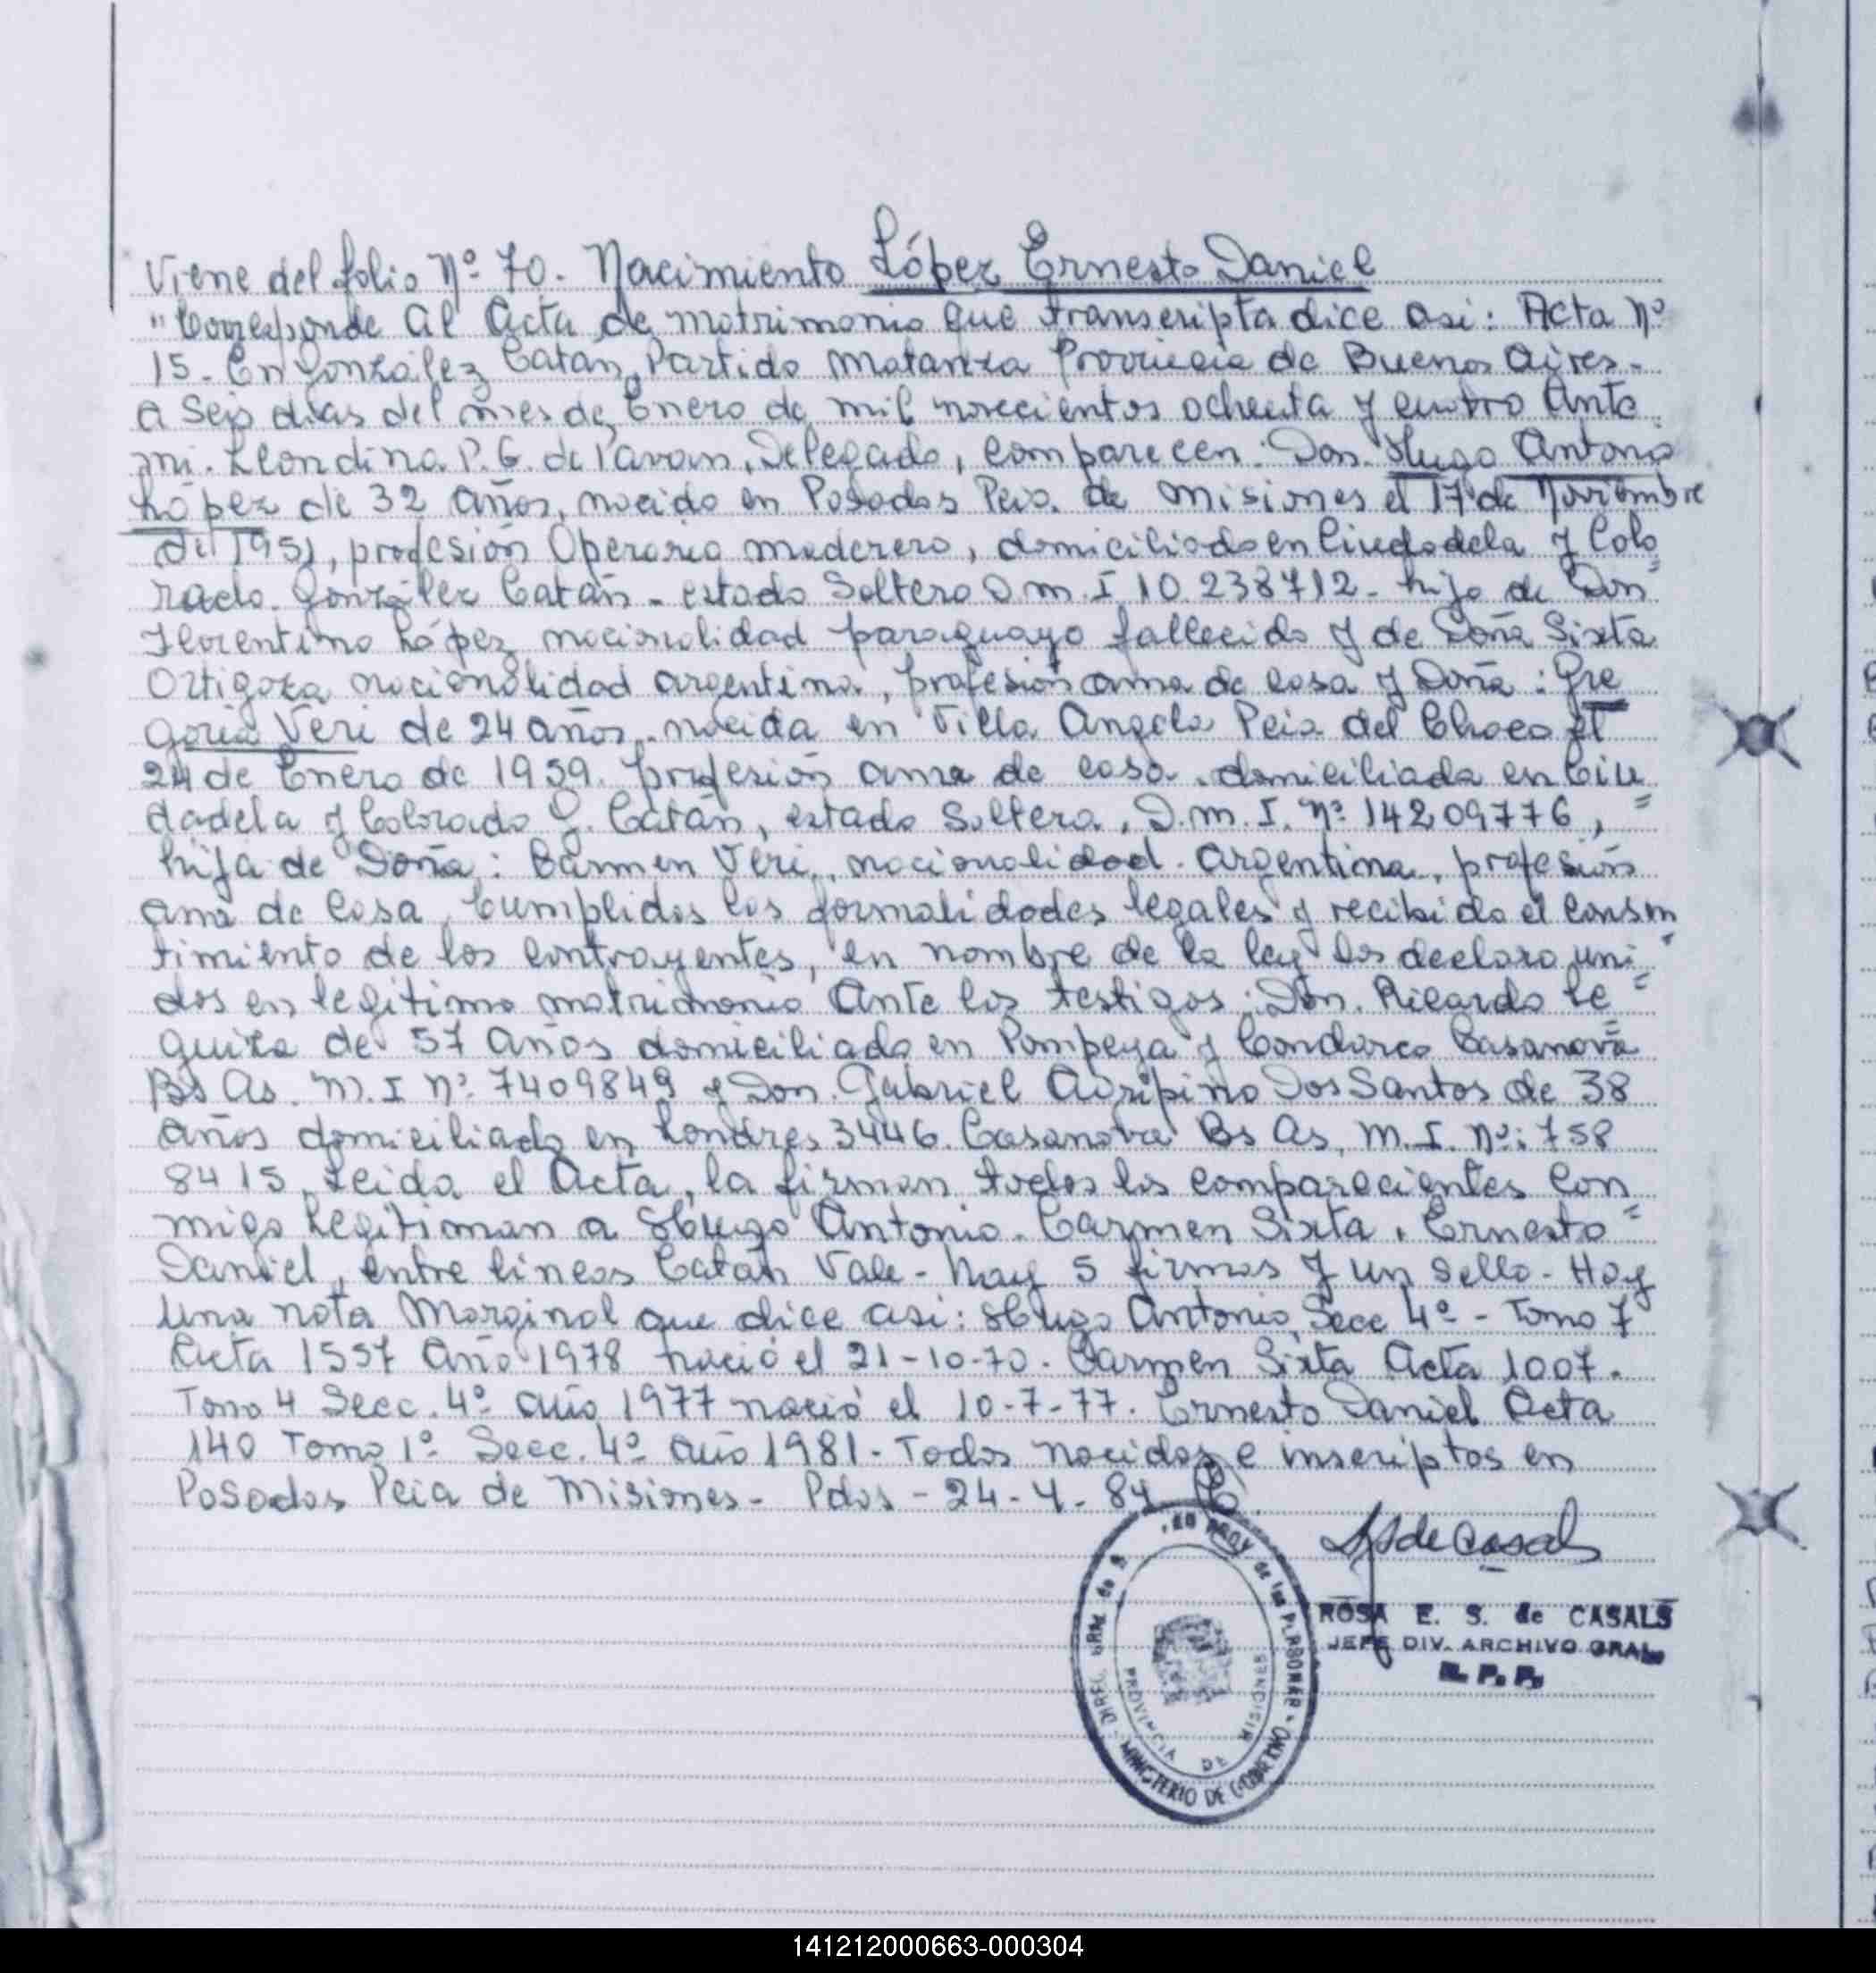 Viene del folio Nº 70. Nacimiento López Ernesto Daniel
"Corresponde al Acta de matrimonio que transcripta dice asi: Acta Nº
15. En González Catan, Partido Matanza Provincia de Buenos Aires-
a Seis dias del mes de Enero de mil novecientos ochenta y cuatro Ante
mi. Leondina P. G. de Pavan, Delegado, comparecen: Don. Hugo Antonio
López de 32 años, nacido en Posadas Pcia. de Misiones el 17 de Noviembre
del 1951, profesión Operario maderero, domiciliado en Ciudadela y Colo
rado. González Catán - estado Soltero D.m.I 10.238712- hijo de Don
Florentino López nacionalidad paraguayo fallecido y de Doña Sixta
Ortigoza nacionalidad argentina, profesión ama de casa y Doña: Gre
goria Veri de 24 años, nacida en Villa Angela Pcia del Chaco el
24 de Enero de 1959. profesión ama de casa. domiciliada en Ciu
dadela y Colorado G. Catán, estado Soltera, D.m.I. Nº 14209776, =
hija de Doña: Carmen Veri, nacionalidad. argentina, profesión
ama de casa, Cumplidas las formalidades legales y recibido el consen
timiento de los contrayentes, en nombre de la ley los declaro uni=
dos en legitimo matrimonio Ante los testigos: Don. Ricardo Le=
guiza de 57 años domiciliado en Pompeya y Condarco Casanova
Bs As. M.I Nº 7409849 y Don. Gabriel Agripino Dos Santos de 38
años domiciliado en Londres 3446. Casanova Bs As, M.I. Nº: 758
8415. Leida el Acta, la firman todos los comparecientes con
migo Legitiman a Hugo Antonio. Carmen Sixta, Ernesto=
Daniel, entre lineas Catán Vale- hay 5 firmas y un sello- Hay
una nota Marginal que dice asi: Hugo Antonio, Secc 4º - Tomo 7
Acta 1557 Año 1978 nació el 21-10-70. Carmen Sixta Acta 1007.
Tomo 4 Secc. 4º año 1977 nació el 10-7-77. Ernesto Daniel Acta
140 Tomo 1º Secc. 4º año 1981- Todos nacidos e inscriptos en
Posadas Pcia de Misiones- Pdas- 24-4-84
ROSA E. S. de CASALS
JEFE DIV. ARCHIVO GRAL
R. P. P.
de las PERSONAS - MINISTERIO DE GOBIERNO
PROVINCIA DE MISIONES
141212000663-000304